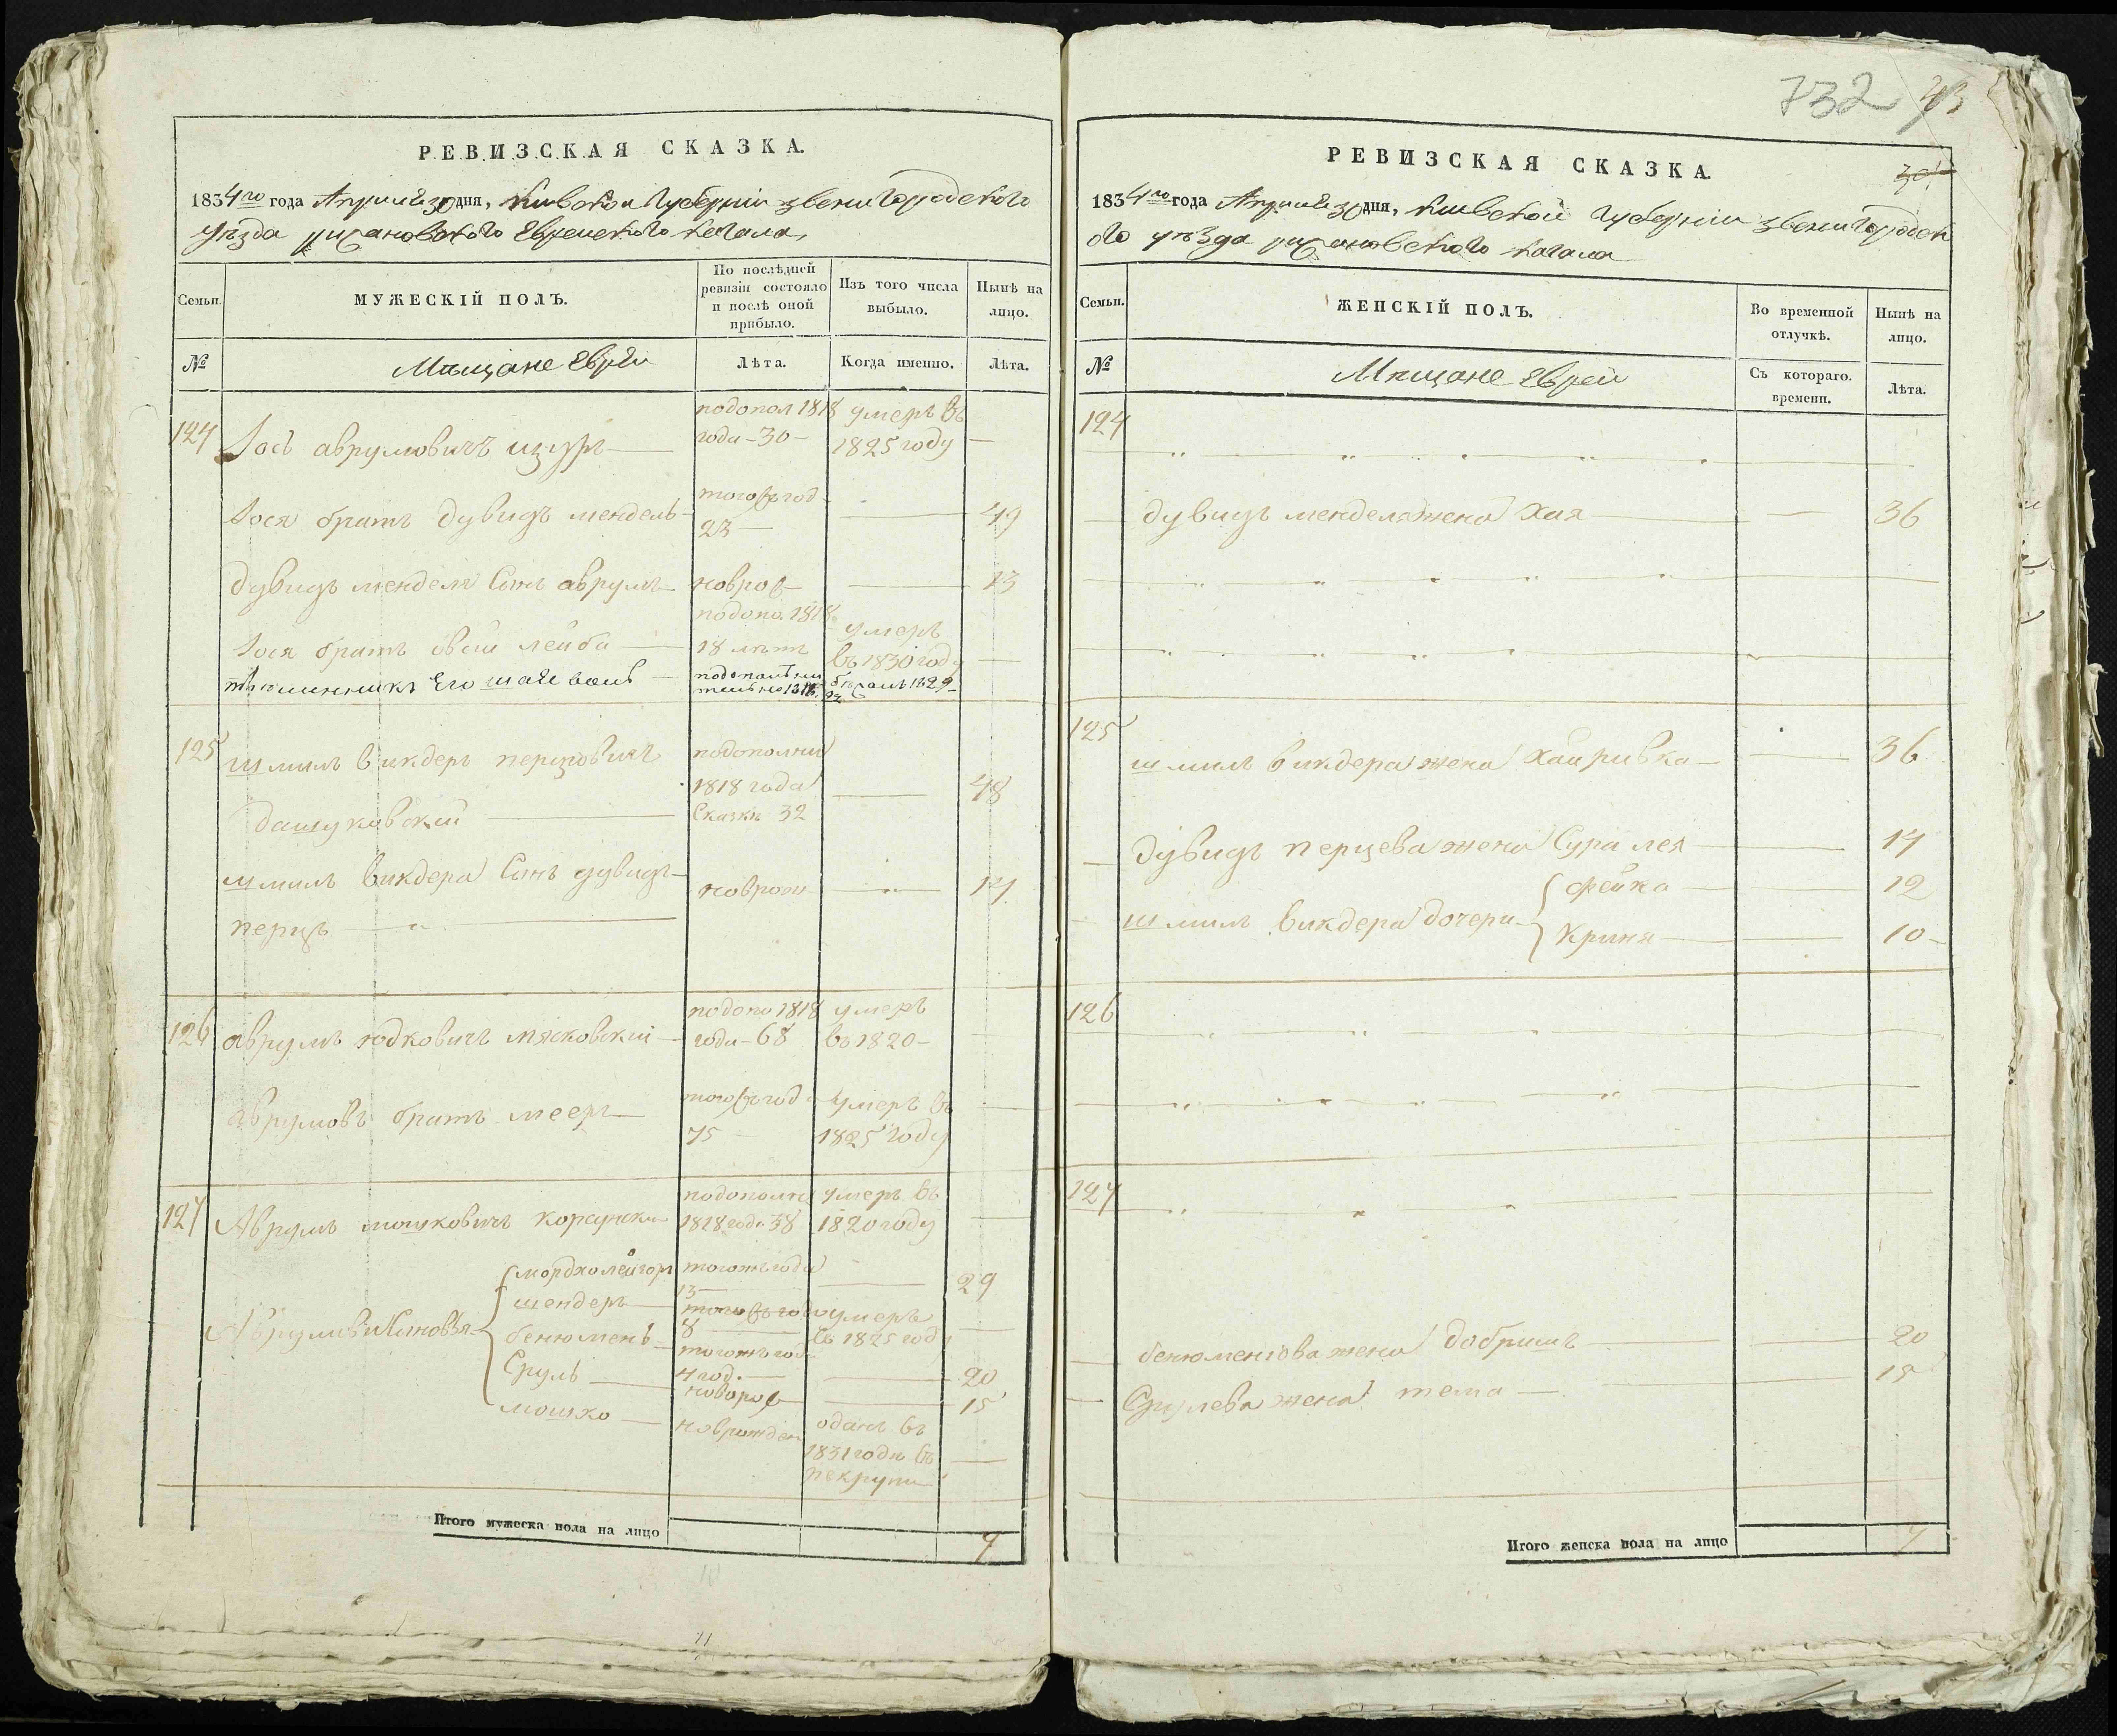 732
43
РЕВИЗСКАЯ СКАЗКА.
1834го года Апреля 30 дня, Киевской Губернии Звенигородского
уезда рижановского Еврейского кагала
Семьи.
МУЖЕСКІЙ ПОЛЪ.
По послѣдней ревизіи состояло и послѣ оной прибыло.
Изъ того числа выбыло.
Нынѣ на лицо.
№
Мещане Евреи
Лѣта.
Когда именно.
Лѣта.
124 Іось аврумовичъ подопол 1818 года - 30 - умеръ въ 1825 году
Іося братъ дувидъ мендель 23 49
дувидъ менделя Сынъ аврумъ новорож 13
Іося братъ овсій лейба подопо. 1818 18 лѣтъ умеръ въ 1830 году
1829
125 шмиль викдеръ перцовичъ подополни
дашуковскій 1818 года Сказкѣ 32 48
шмиль викдера Сынъ дувидъ новрож 14
перцъ
126 аврумъ юдковичъ мясковскій подопо 1818 года - 68 умеръ въ 1820 -
аврумовъ братъ мееръ 75 умеръ въ 1825 году
127 Аврумъ мошковичъ корсунски подополни 1818 года 38 умеръ въ 1820 году
Аврумови Сыновья
мордхолейзоръ тогожъ года 13 29
шендеръ 8 умеръ въ 1825 году
бенюмень тогожъ года 4 год. 20
Сруль новорож 15
мошко новрожден одань въ 1831 годѣ въ рекруты
Итого мужеска пола на лицо 7
РЕВИЗСКАЯ СКАЗКА.
1834го года Апреля 30 дня, Киевской Губерніи Звенигородск
ого уѣзда рижановского кагала
Семьи.
ЖЕНСКІЙ ПОЛЪ.
Во временной отлучкѣ.
Нынѣ на лицо.
№
Мещане Евреи
Съ котораго времени.
Лѣта.
124
дувидъ менделя жена Хая 36
125
шмиль викдера жена Хаяривка 36
дувидъ перцева жена Сура лея 14
шмиль викдера дочери
фейга 12
Криня 10
126
127
бенюменова жена добришъ 20
Срулева жена тема 15
Итого женска пола на лицо 7